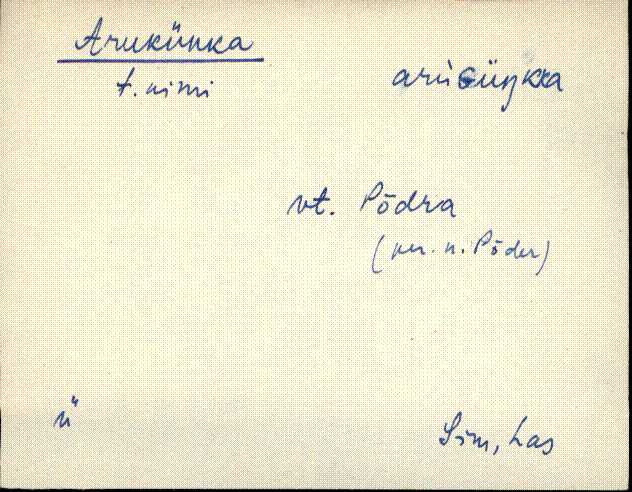 Arukünka
t. nimi
arùGüŋkka
vt. Põdra
(per. n. Põder)
ü
Sim, Las